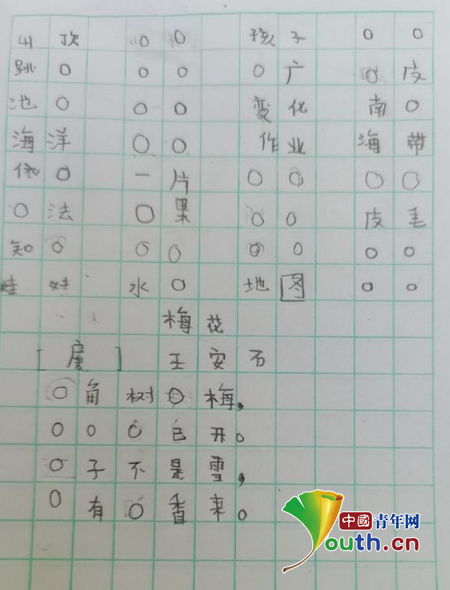 出 次 〇 〇 孩 子 〇 〇
跳 〇 〇 〇 〇 广 〇 皮
池 〇 〇 〇 变 化 南 〇
海 洋 〇 〇 作 业 海 带
〇 一 片 〇 〇 〇 〇
〇 法 〇 果 〇 〇 皮 毛
知 〇 〇 〇 〇 〇 〇 〇
娃 娃 水 〇 地 图 〇 〇
梅 花
[ 唐 ] 王 安 石
〇 角 树 〇 梅,
〇 〇 〇 自 开。
〇 子 不 是 雪,
〇 有 〇 香 来。
中國青年网
Youth.cn